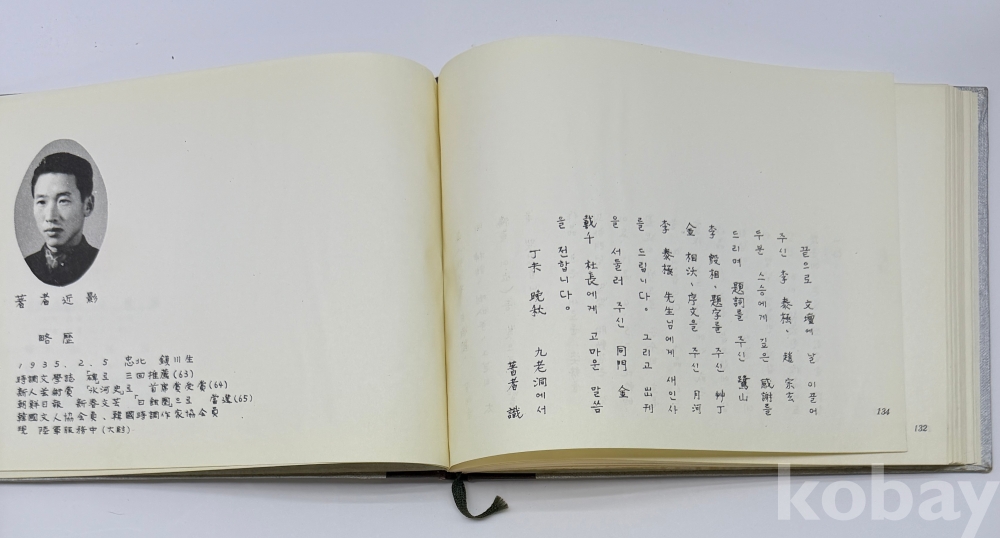 著者近影
略歷
1935. 2. 5 忠北 鎭川生
時調文學誌 「魂」로 三回推薦(63)
新人芸術賞 「氷河史」로 首席賞受賞(64)
朝鮮日報 新春文芸 으로 當選(65)
韓國文人協会員、韓國時調作家協会員
現 陸軍服務中(大尉)
끝으로 文壇에 날 이끌어
주신 李 泰極、 趙 宗玄
두분 스승에게 깊은 感謝를
드리며 題詞를 주신 鷺山
李 殷相、題字를 주신 艸丁
金 相沃、序文을 주신 月河
李 泰極 先生님에게 새인사
를 드립니다。 그리고 出刊
을 서둘러 주신 同門 金
載千 社長에게 고마운 말씀
을 전합니다。
丁未 晩秋 九老洞에서
著者 識
134
132
kobay